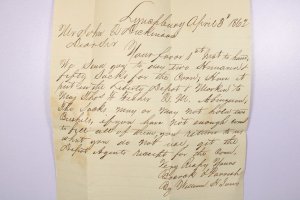 Lynchburg April 3d 1862
Mr John D Stickmann
Dear Sir
Your favor 1st inst to hand,
We send you to day Two Hundred &
fifty Sacks for the Corn, Have it
put in the Liberty Depot & Marked to
Maj Thos Fisher Q. M. Abingdon,
The Sacks may or may not hold two
Bushels, if you have not enough corn
to fill all of them, you return to us
what you do not use, get the
Depot Agents receipt for the Corn,
Very Resply Yours
& Parrish
By William